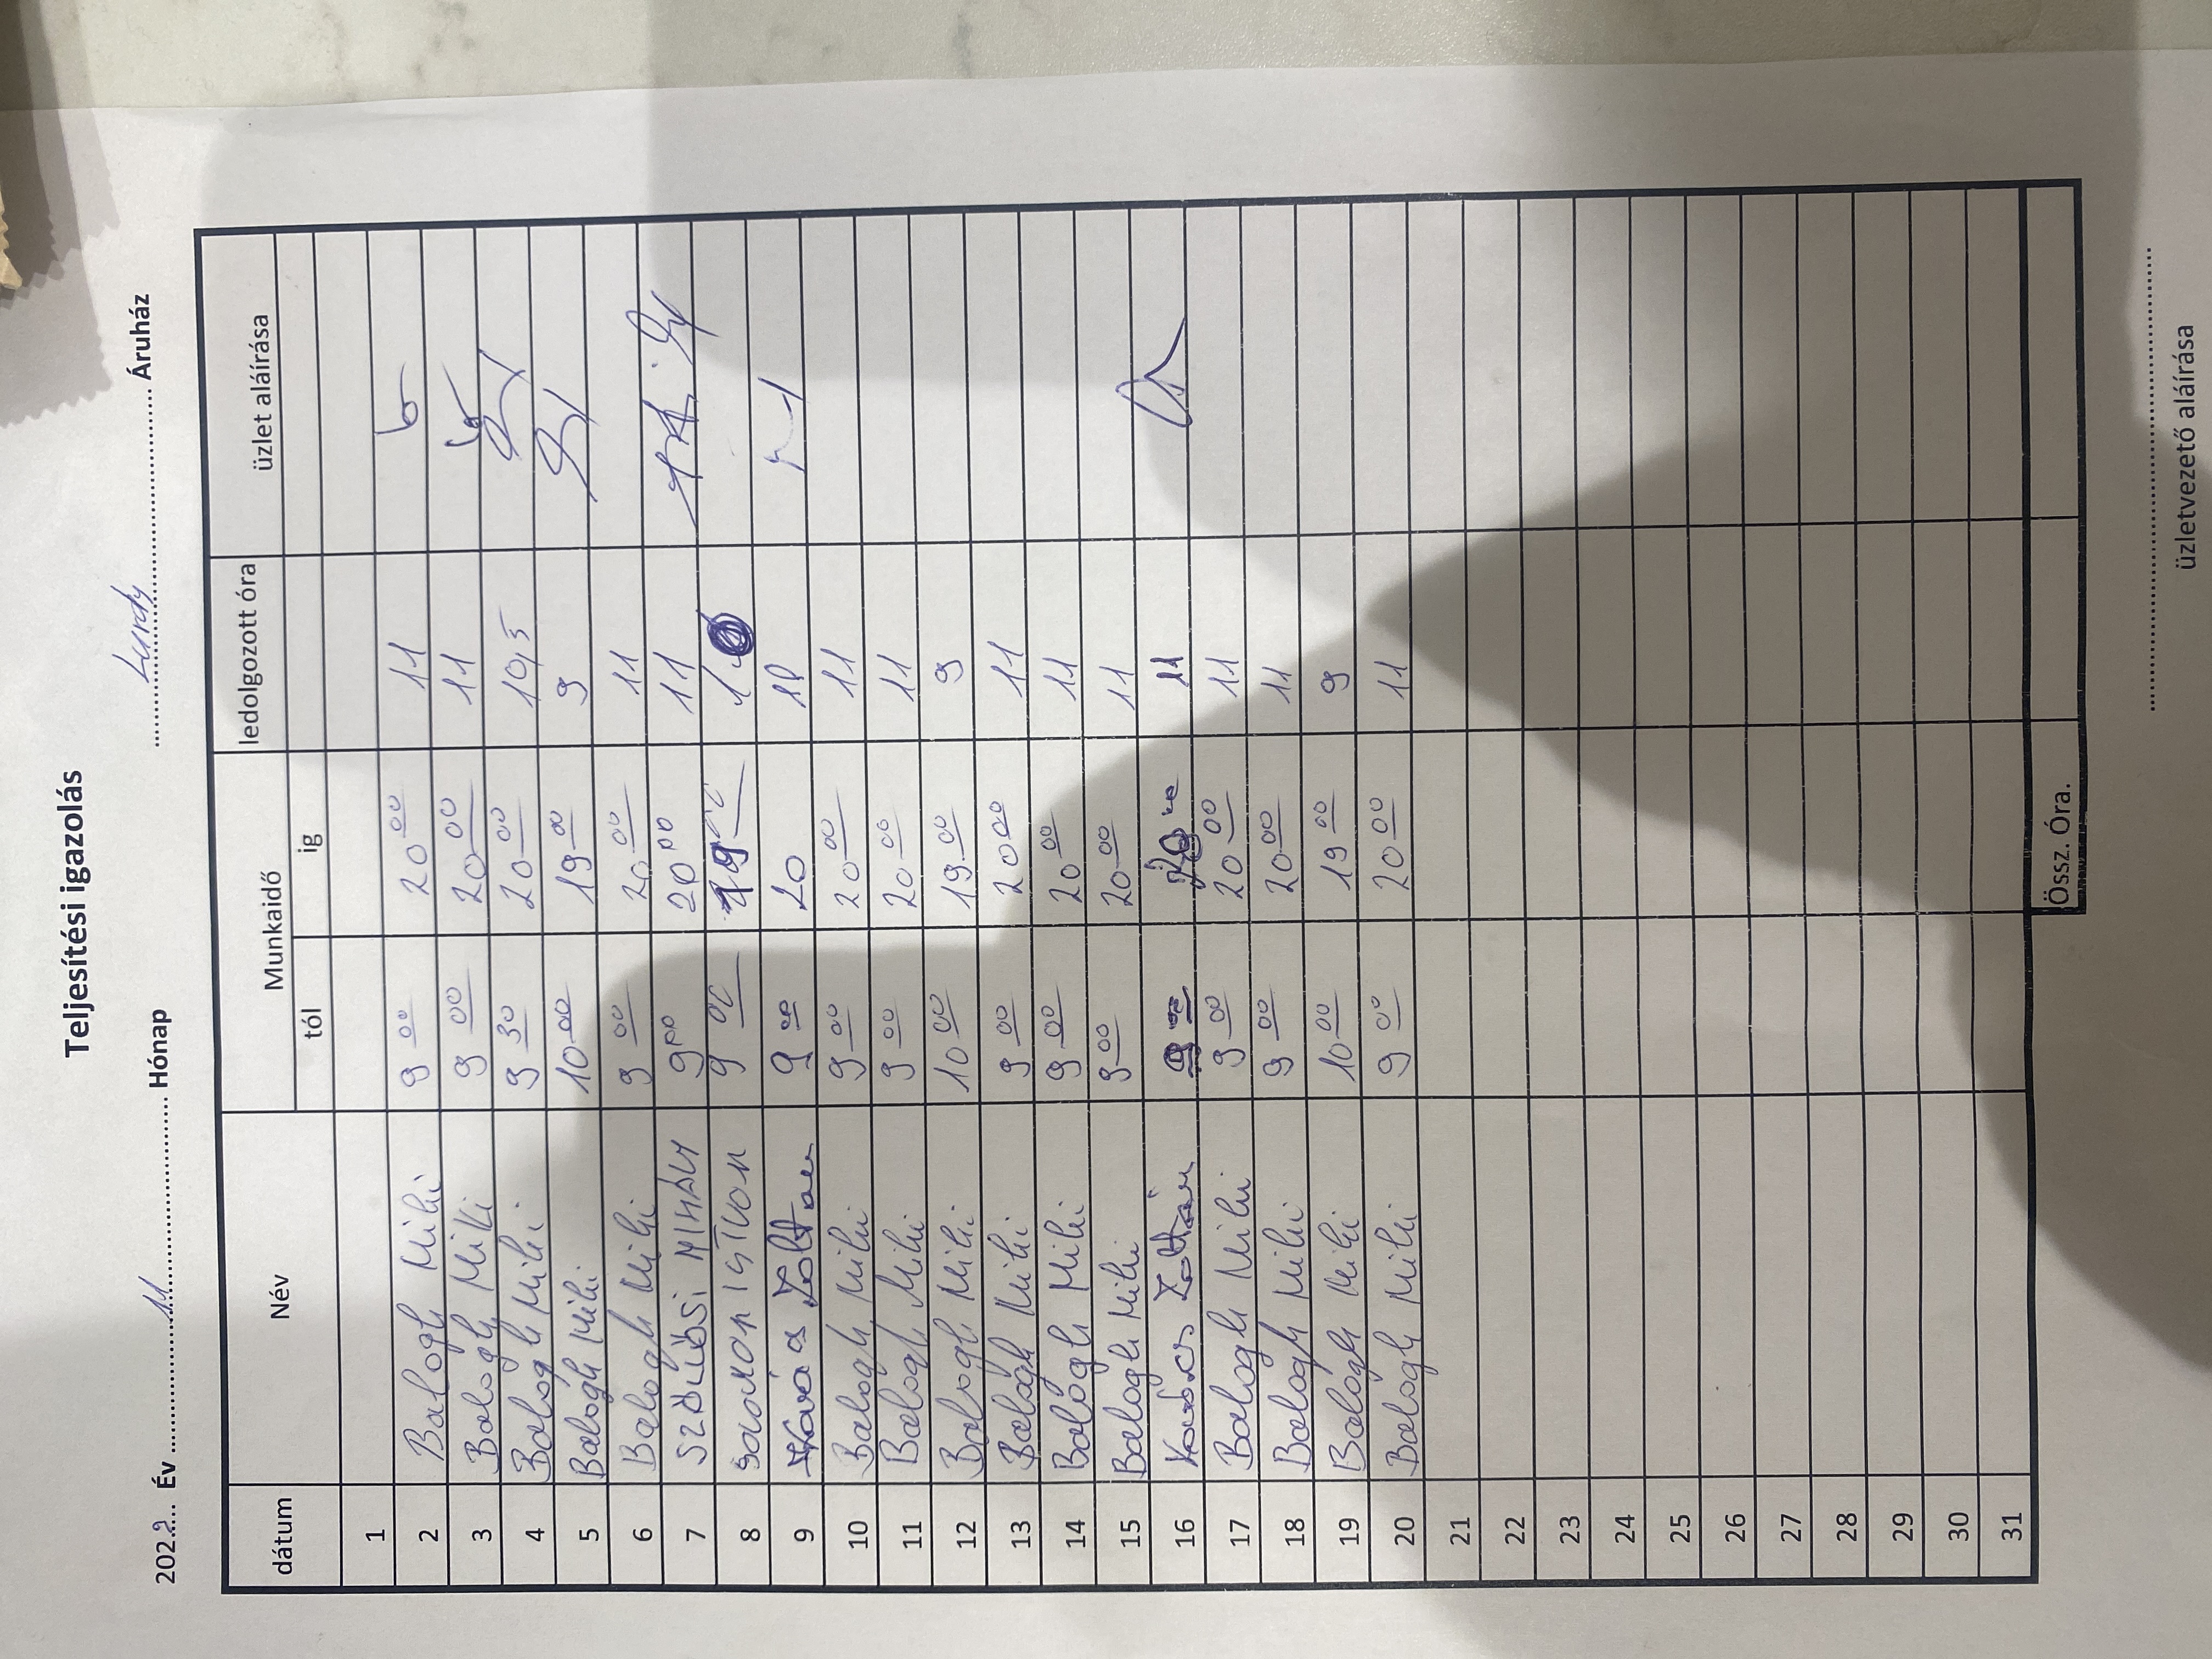 Teljesítési igazolás
2022 Év 11 Hónap Lurdy Áruház
dátum Név Munkaidő ledolgozott óra üzlet aláírása
tól ig
1
2 Balogh Miki 9 00 20 00 11
3 Balogh Miki 9 00 20 00 11
4 Balogh Miki 9 30 20 00 10,5
5 Balogh Miki 10 00 19 00 9
6 Balogh Miki 9 00 20 00 11
7 MIHÁLY 9 00 20 00 11
8 ISTVÁN 9 00 19 00
9 Kovács Zoltan 9 00 20
10 Balogh Miki 9 00 20 00 11
11 Balogh Miki 9 00 20 00 11
12 Balogh Miki 10 00 19 00 9
13 Balogh Miki 9 00 20 00 11
14 Balogh Miki 9 00 20 00 11
15 Balogh Miki 9 00 20 00 11
16 Kovács Zoltán 9 00 20 00 11
17 Balogh Miki 9 00 20 00 11
18 Balogh Miki 9 00 20 00 11
19 Balogh Miki 10 00 19 00 9
20 Balogh Miki 9 00 20 00 11
21
22
23
24
25
26
27
28
29
30
31
Össz. Óra.
üzletvezető aláírása